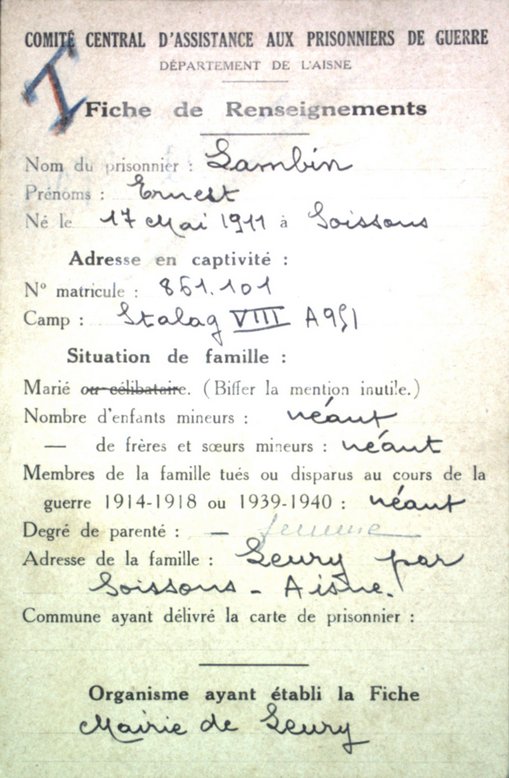 COMITÉ CENTRAL D'ASSISTANCE AUX PRISONNIERS DE GUERRE
DÉPARTEMENT DE L'AISNE
I
Fiche de Renseignements
Nom du prisonnier : Lambin
Prénoms : Ernest
Né le 17 Mai 1911 à Soissons
Adresse en captivité :
N° matricule : 851.101
Camp : Stalag VIII A 951
Situation de famille :
Marié ou célibataire. (Biffer la mention inutile.)
Nombre d'enfants mineurs : néant
— de frères et sœurs mineurs : néant
Membres de la famille tués ou disparus au cours de la
guerre 1914-1918 ou 1939-1940 : néant
Degré de parenté : — femme
Adresse de la famille : Leury par
Soissons - Aisne.
Commune ayant délivré la carte de prisonnier :
Organisme ayant établi la Fiche
Mairie de Leury